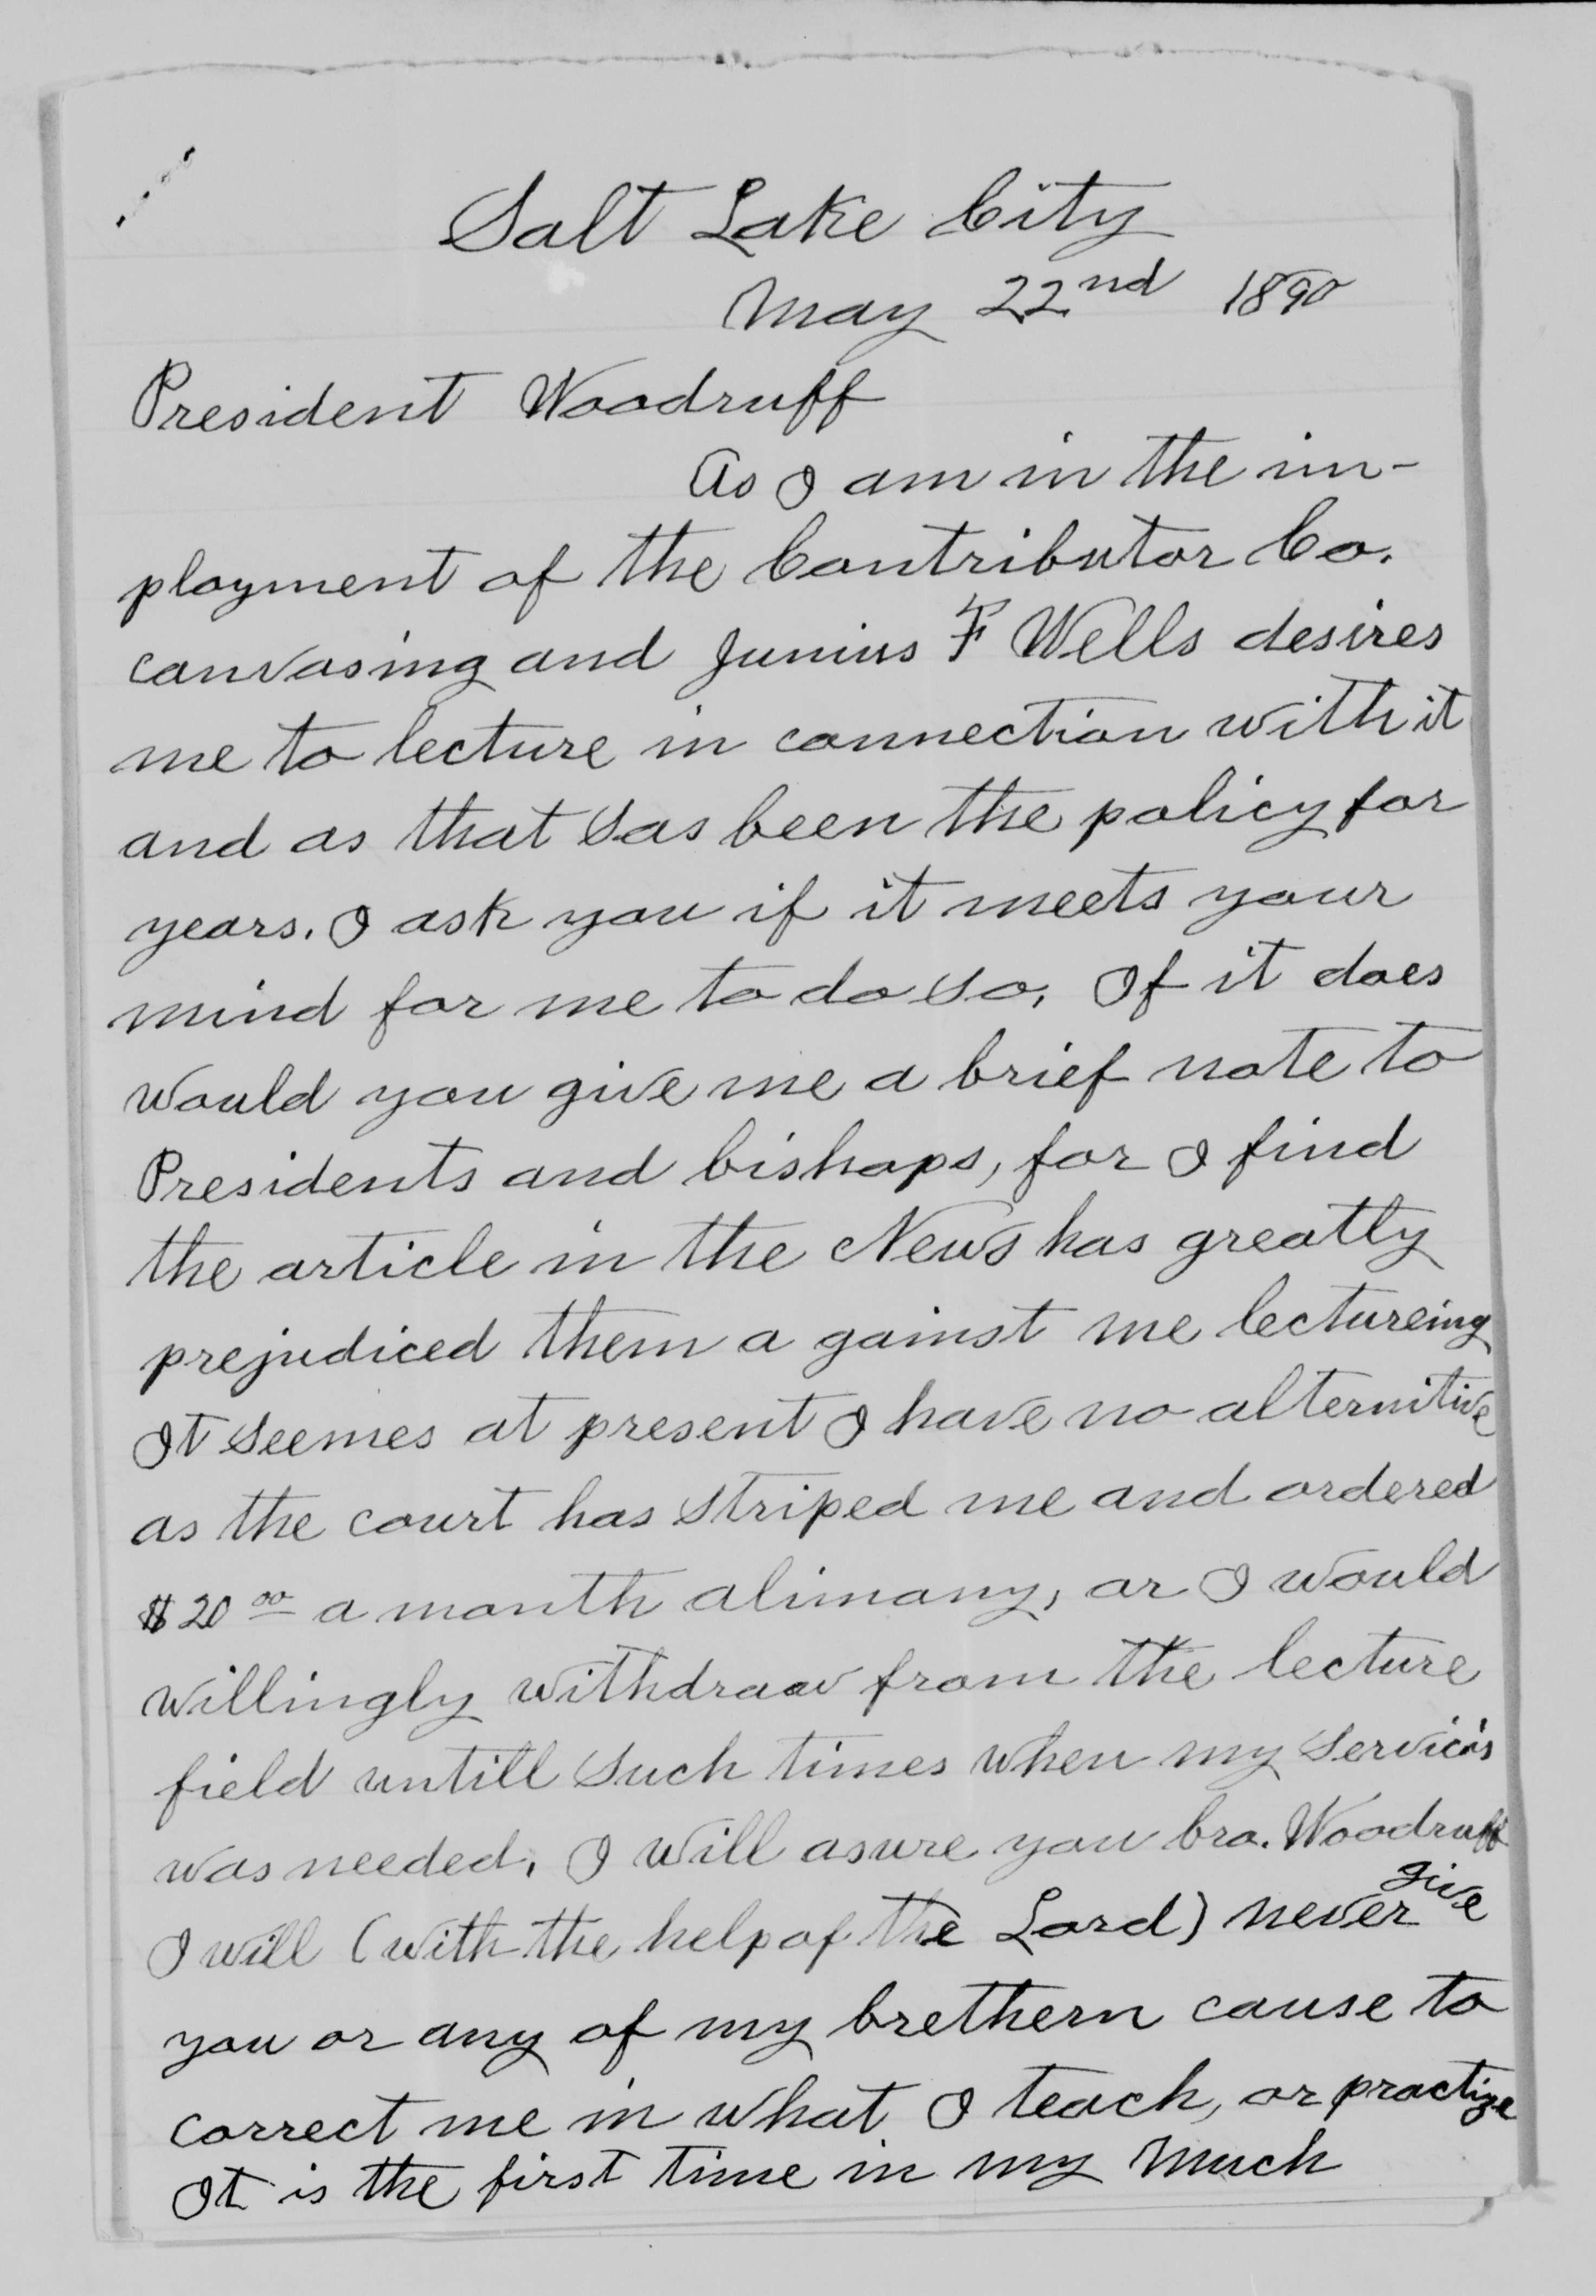 Salt Lake City
May 22nd 1890
President Woodruff
As I am in the im-
ployment of the Contributor Co.
canvasing and Junius F Wells desires
me to lecture in connection with it
and as that has been the policy for
years. I ask you if it meets your
mind for me to do so. If it does
would you give me a brief note to
Presidents and bishops, for I find
the article in the News has greatly
prejudiced them a gainst me lectureing
It seemes at present I have no alternitive
as the court has striped me and ordered
$20 00 a month alimony, or I would
willingly withdraw from the lecture
field untill such times when my servicis
was needed. I will asure you bro. Woodruff
I will (with the help of the Lord) never give
you or any of my brethern cause to
correct me in what I teach, or practize
It is the first time in my much